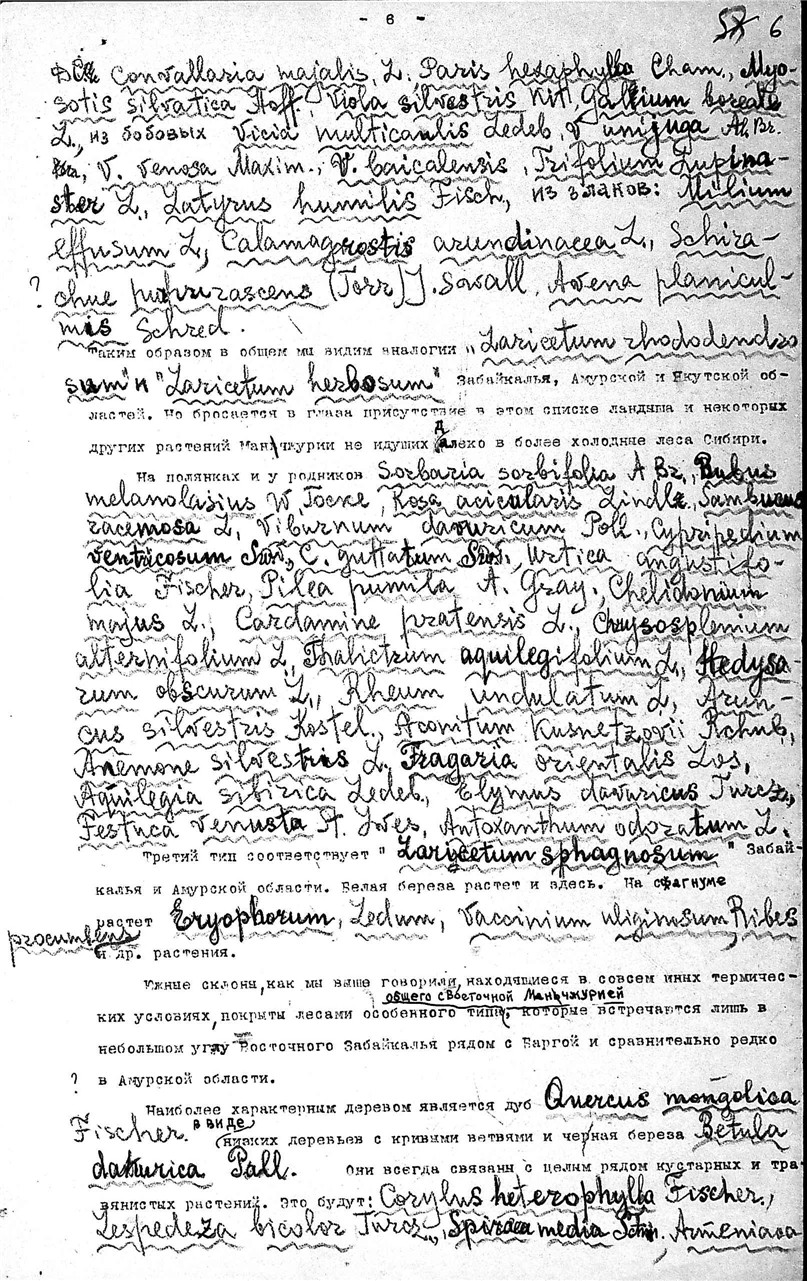 - 6 -
6
Convallaria majalis, L. Paris hexaphylla Cham., Myo-
sotis silvatica Hoff, Viola silvestris Kit, Gallium boreale
L., из бобовых Vicia multicaulis Ledeb, V unijuga Al, Br.
V. venosa Maxim., V. baicalensis, Trifolium Lupina-
ster L., Latyrus humilis Fisch, из злаков: Milium
effusum L, Calamagrostis arundinacea L., Schiza-
? chne purpurascens (Torr) Swall, Avena planicul-
mis Schred.
Таким образом в общем мы видим аналогии "Laricetum rhododendro
sum" и "Laricetum herbosum" Забайкалья, Амурской и Якутской об-
ластей. Но бросается в глаза присутствие в этом списке ландыша и некоторых
других растений Манчжурии не идущих далеко в более холодные леса Сибири.
На полянках и у родников Sorbaria sorbifolia A Br., Rubus
melanolasius W, Focke, Rosa acicularis Lindl., Sambucus
racemosa L, Viburnum davuricum Poll., Cypripedium
ventricosum Sw., C. guttatum Sw., Urtica angustifo-
lia Fischer, Pilea pumila A. Gray., Chelidonium
majus L., Cardamine pratensis L., Chrysosplenium
alternifolium L, Thalictrum aquilegifolium L., Hedysa-
rum obscurum L., Rheum undulatum L, Arun-
cus silvestris Kostel., Aconitum Kusnetzovii Rchub,
Anemone silvestris L. Fragaria orientalis Los,
Aquilegia sibirica Ledeb., Elymus davuricus Turcz.,
Festuca venusta St. Yves, Antoxanthum odoratum L.
Третий тип соответствует "Laricetum sphagnosum" Забай-
калья и Амурской области. Белая береза растет и здесь. На сфагнуме
растет Eryophorum, Ledum, Vaccinium uliginsum, Ribes
procumbens
и др. растения.
Южные склоны, как мы выше говорили, находящиеся в совсем иных термичес-
общего с Восточной Маньчжурией
ких условиях, покрыты лесами особенного типа, которые встречаются лишь в
небольшом углу Восточного Забайкалья рядом с Баргой и сравнительно редко
? в Амурской области.
Наиболее характерным деревом является дуб Quercus mongolica
Fischer. в виде низких деревьев с кривыми ветвями и черная береза Betula
davurica Pall. Они всегда связаны с целым рядом кустарных и тра
вянистых растений. Это будут: Corylus heterophylla Fischer.,
Lespedeza bicolor Turcz., Spiraea media Schm, Armeniaca